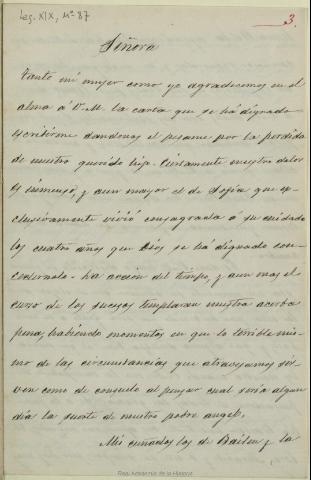 Leg. XIX, nº 87
3.
Señora
Tanto mi mujer como yo agradecemos en el
alma á V. M. la carta que se há dignado
escribirme dandonos el pesame por la perdida
de nuestro querido hijo. Ciertamente nuestro dolor
es inmenso, y aun mayor el de Sofia que ex-
clusivamente vivió consagrada á su cuidado
los cuatro años que Dios se ha dignado con-
cedernolo. La acción del tiempo, y aun mas el
curso de los sucesos templaran nuestra acerba
pena, habiendo momentos en que lo terrible mis-
mo de las circunstancias que atravesamos sir-
ven como de consuelo al pensar cual seria algun
dia la suerte de nuestro pobre angel.
Mis cuñados los de Bailen y la
Real Academia de la Historia